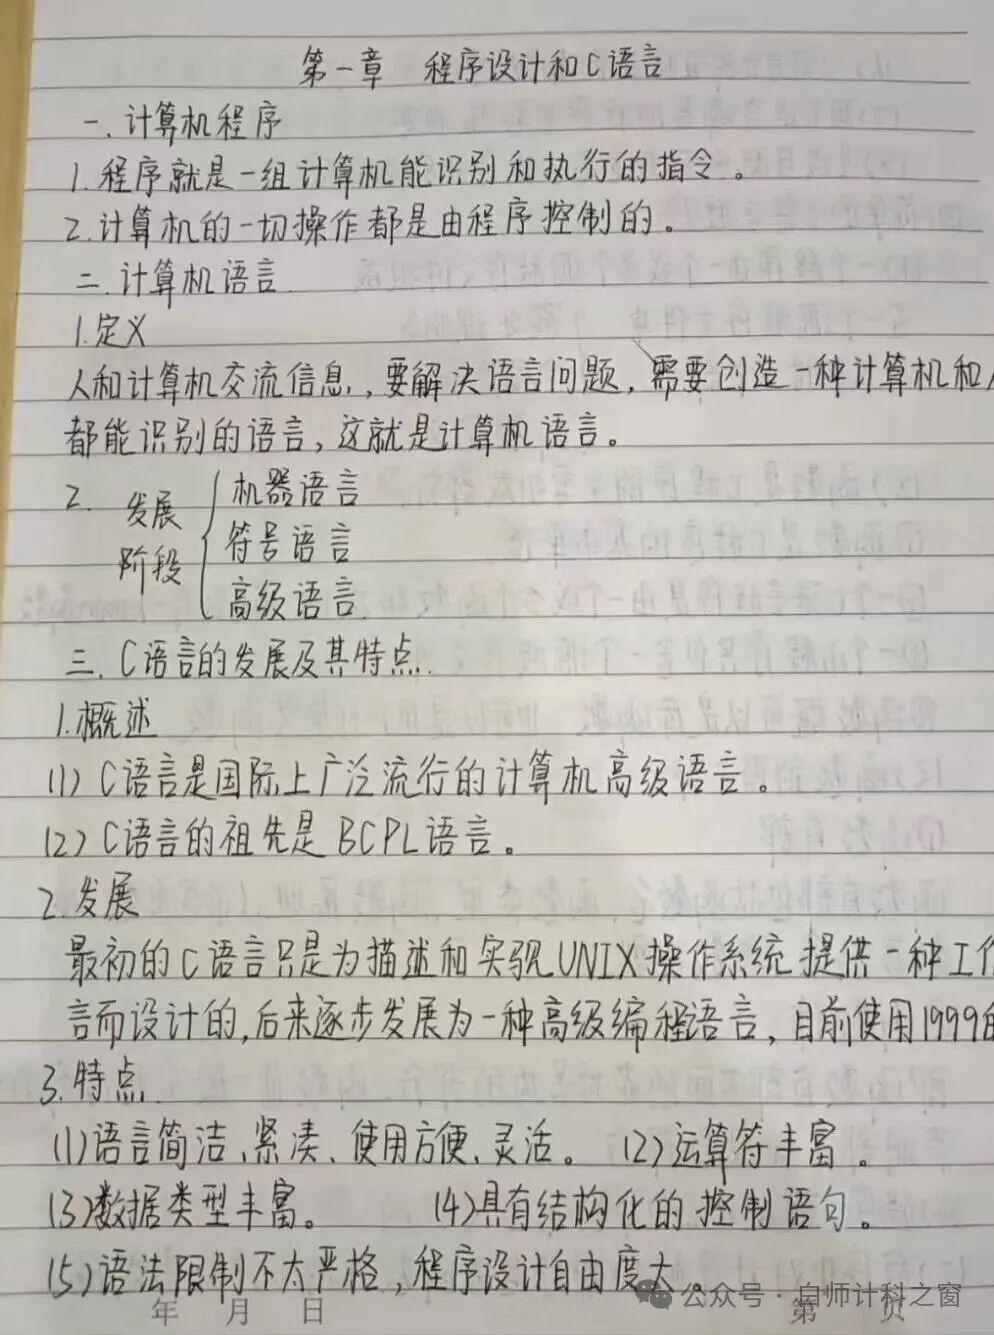 第一章 程序设计和C语言
一.计算机程序
1.程序就是一组计算机能识别和执行的指令。
2.计算机的一切操作都是由程序控制的。
二.计算机语言.
1.定义
人和计算机交流信息,要解决语言问题,需要创造一种计算机和人
都能识别的语言,这就是计算机语言。
2. 发展阶段
机器语言
符号语言
高级语言
三.C语言的发展及其特点.
1.概述
(1)C语言是国际上广泛流行的计算机高级语言。
(2)C语言的祖先是BCPL语言。
2.发展
最初的C语言只是为描述和实现UNIX操作系统提供一种工作
言而设计的,后来逐步发展为一种高级编程语言,目前使用1999的
3.特点.
(1)语言简洁、紧凑、使用方便、灵活。 (2)运算符丰富。
(3)数据类型丰富。 (4)具有结构化的控制语句。
(5)语法限制不太严格,程序设计自由度大。
年 月 日 第 页
公众号·自师计科之窗